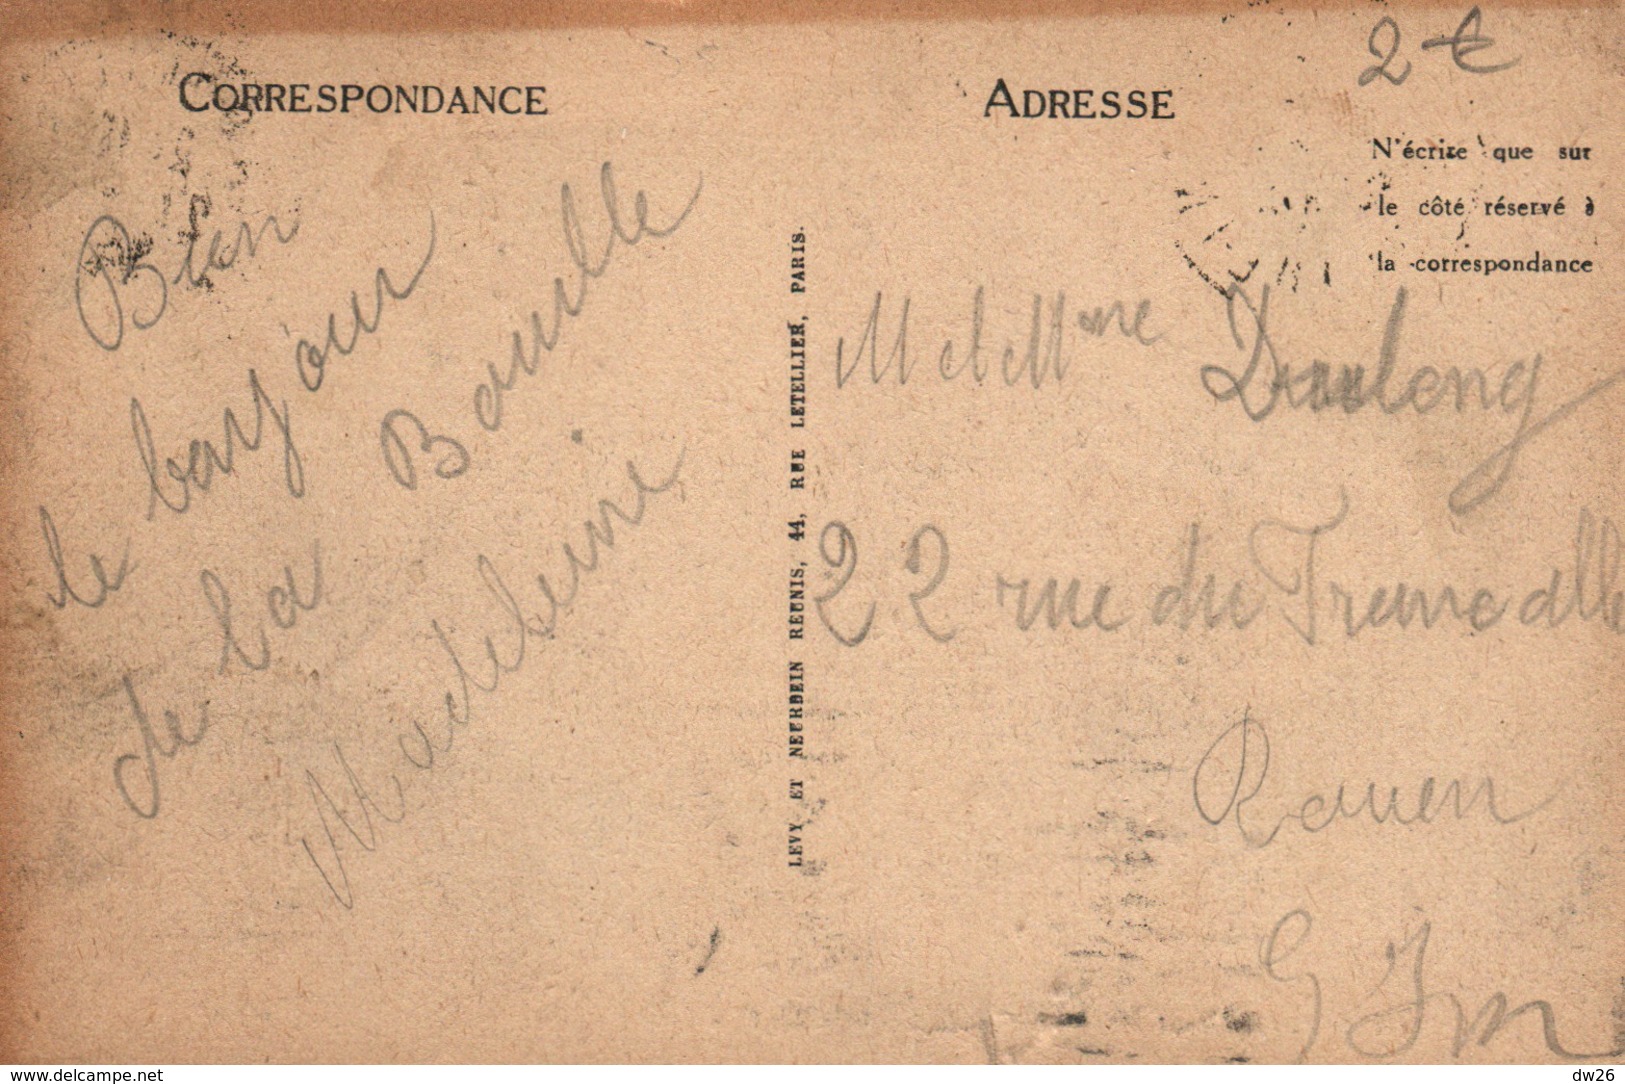 CORRESPONDANCE
Bien
le bonjour
de La Bouille
Madeleine
LEVY ET NEURDEIN REUNIS, 44, RUE LETELLIER, PARIS.
2 €
ADRESSE
N'écrire que sur
le côté réservé à
la correspondance
M et Mme
22 rue du
Rouen
www.delcampe.net
dw26